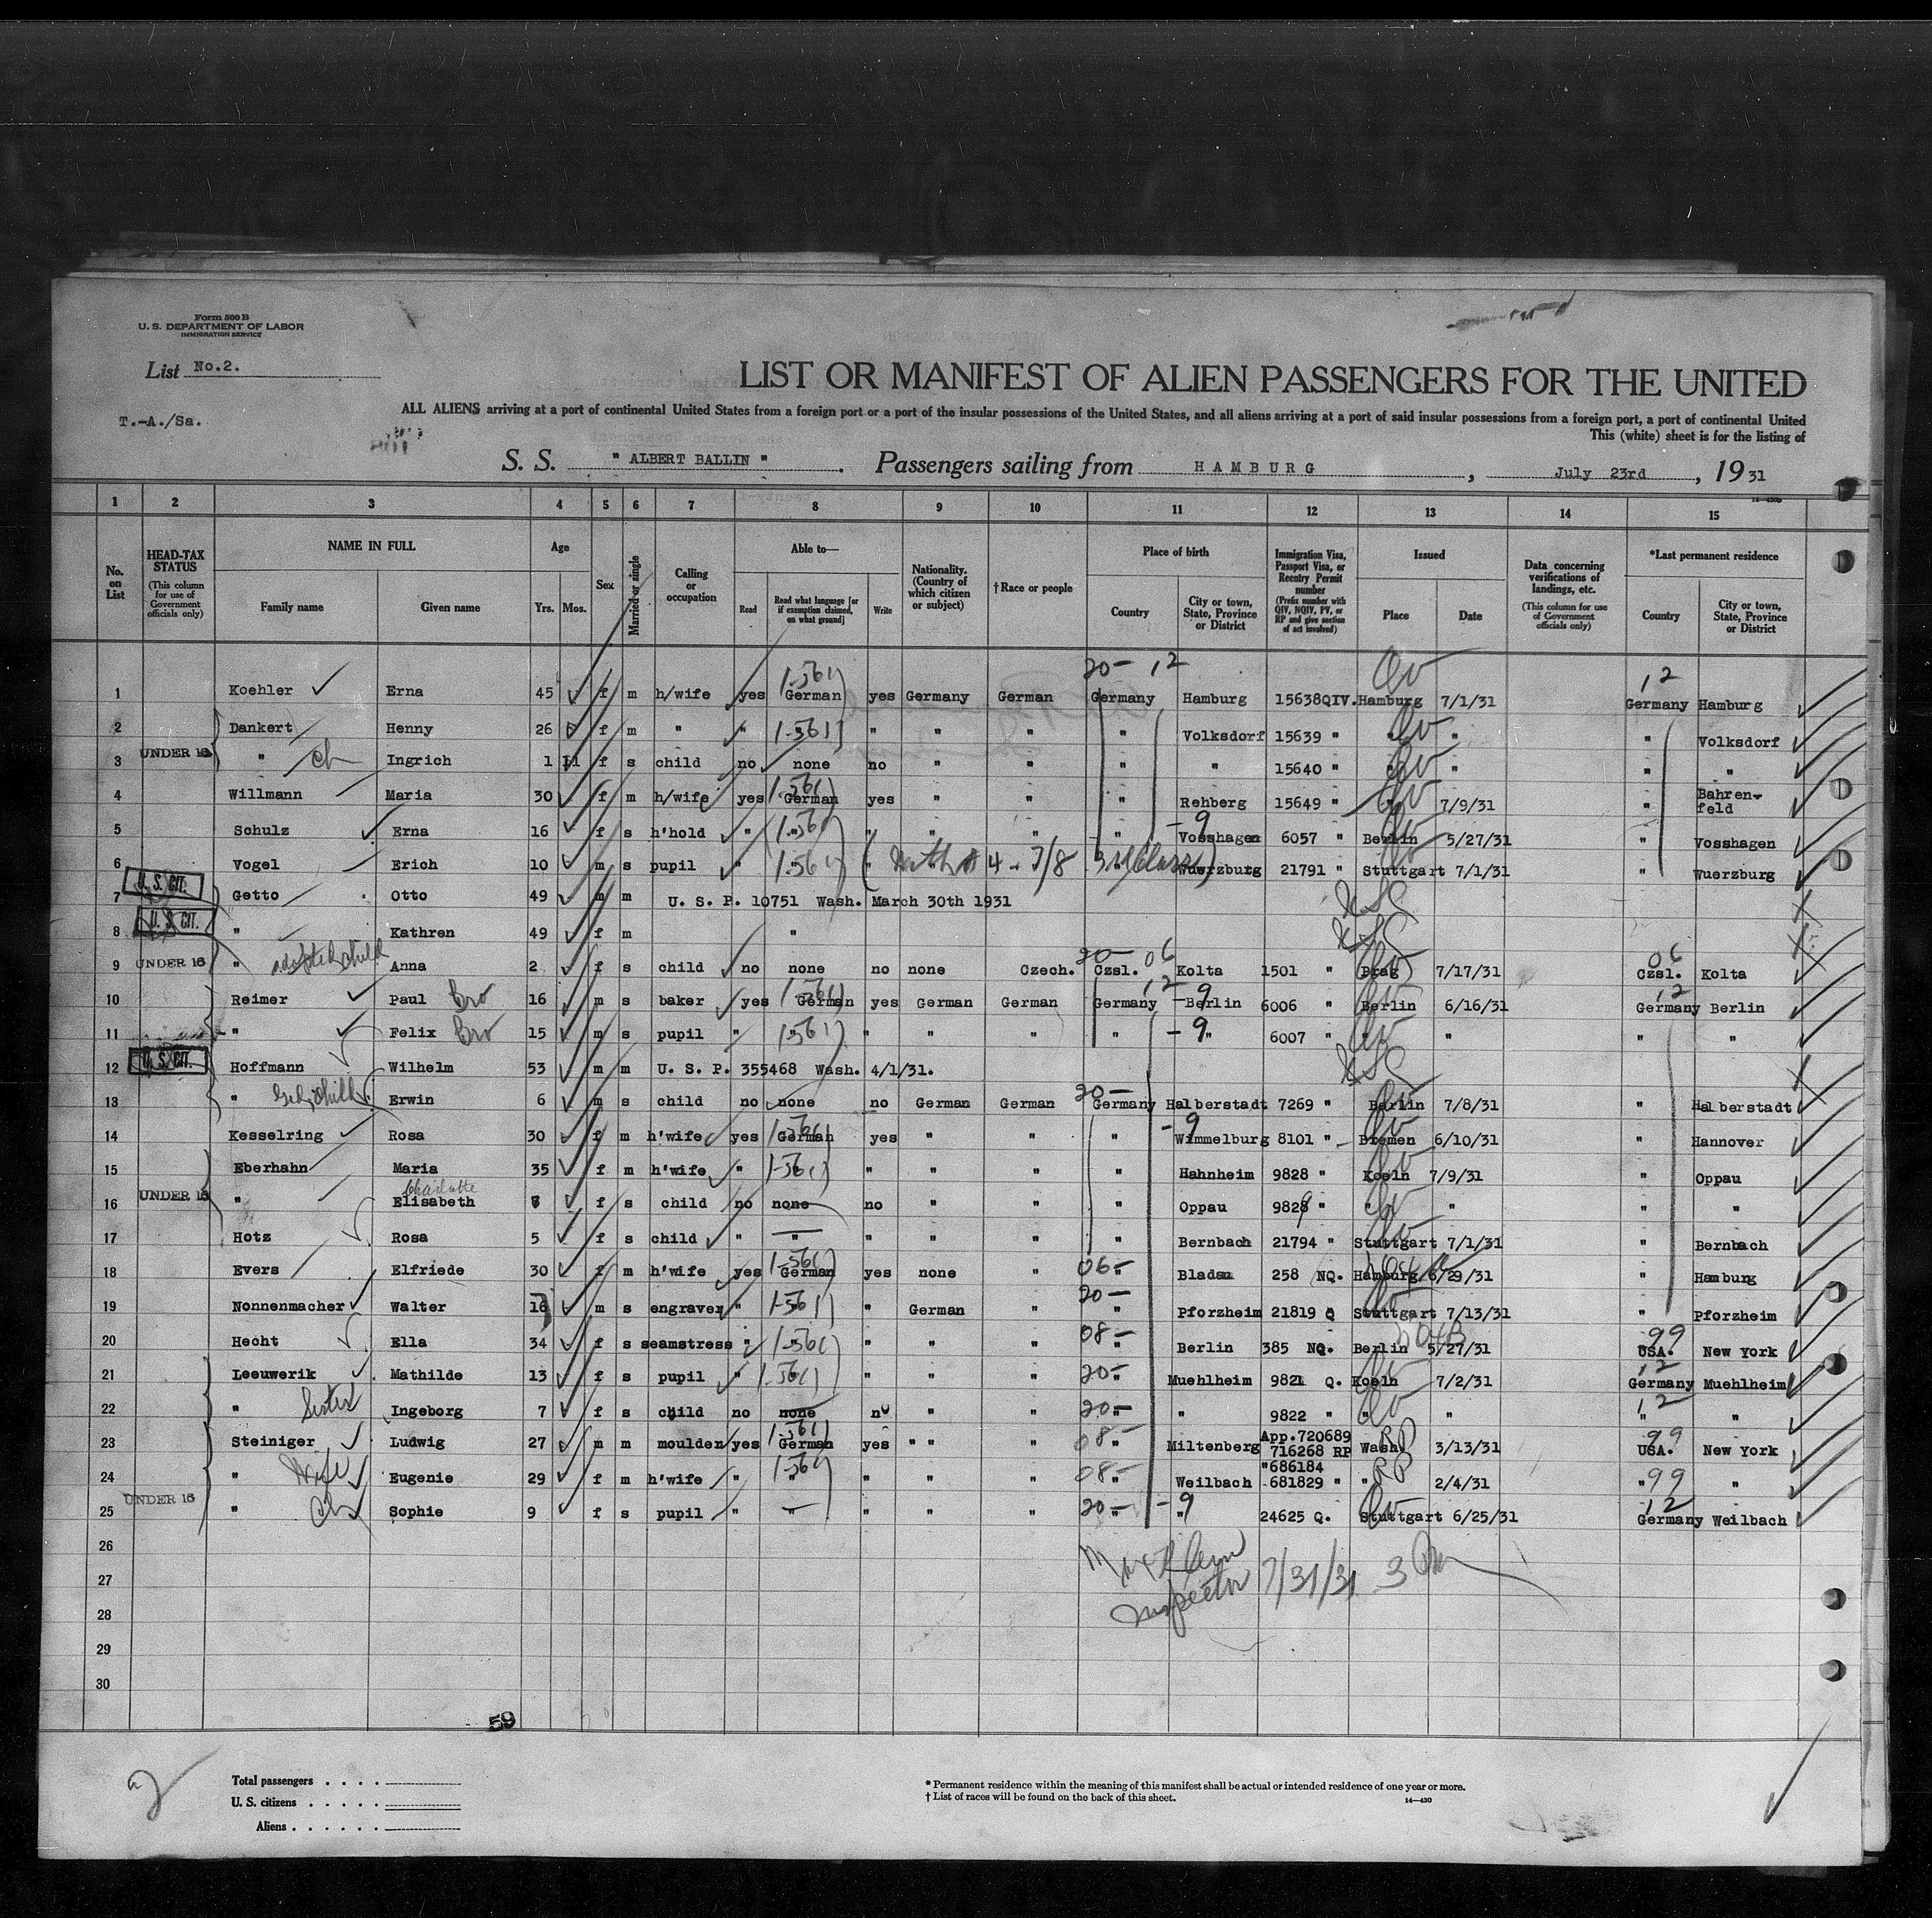 Form 500 B
U. S. DEPARTMENT OF LABOR
IMMIGRATION SERVICE
List No.2.
T.-A./Sa.
LIST OR MANIFEST OF ALIEN PASSENGERS FOR THE UNITED
ALL ALIENS arriving at a port of continental United States from a foreign port or a port of the insular possessions of the United States, and all aliens arriving at a port of said insular possessions from a foreign port, a port of continental United
This (white) sheet is for the listing of
S. S. " ALBERT BALLIN " . Passengers sailing from HAMBURG , July 23rd , 19 31
14—430
1 2 3 4 5 6 7 8 9 10 11 12 13 14 15
No. on List
HEAD-TAX STATUS (This column for use of Government officials only)
NAME IN FULL Family name Given name
Age Yrs. Mos.
Sex
Married or single
Calling or occupation
Able to— Read Read what language [or if exemption claimed, on what ground] Write
Nationality. (Country of which citizen or subject)
†Race or people
Place of birth Country City or town, State, Province or District
Immigration Visa, Passport Visa, or Reentry Permit number (Prefix number with QIV, NQIV, PV, or RP and give section of act involved)
Issued Place Date
Data concerning verifications of landings, etc. (This column for use of Government officials only)
*Last permanent residence Country City or town, State, Province or District
20- 12 Qv 12
1 Koehler Erna 45 f m h/wife yes German yes Germany German Germany Hamburg 15638QIV. Hamburg 7/1/31 Germany Hamburg
2 Dankert Henny 26 f m " " " " " " " Volksdorf 15639 " " " " Volksdorf
UNDER 16
3 " Ch Ingrich 1 11 f s child no none no " " " " 15640 " " " " "
4 Willmann Maria 30 f m h/wife yes German yes " " " Rehberg 15649 " " 7/9/31 " Bahren-feld
5 Schulz Erna 16 f s h'hold " " " " " " -9 Vosshagen 6057 " Berlin 5/27/31 " Vosshagen
6 Vogel Erich 10 m s pupil " " " 4 - 7/8 3rd Class) Wuerzburg 21791 " Stuttgart 7/1/31 " Wuerzburg
U. S. CIT.
7 Getto Otto 49 m m U. S. P. 10751 Wash. March 30th 1931
U. S. CIT.
8 " Kathren 49 f m "
UNDER 16
9 " adopted child Anna 2 f s child no none no none Czech. 20- 06 Czsl. Kolta 1501 " Prag 7/17/31 06 Czsl. Kolta
10 Reimer Paul Bro 16 m s baker yes German yes German German Germany 12 -9 Berlin 6006 " Berlin 6/16/31 12 Germany Berlin
11 " Felix Bro 15 m s pupil " " " " " " -9 " 6007 " " " " "
U. S. CIT.
12 Hoffmann Wilhelm 53 m m U. S. P. 355468 Wash. 4/1/31.
13 " Erwin 6 m s child no none no German German 20- Germany Halberstadt 7269 " Berlin 7/8/31 " Halberstadt
14 Kesselring Rosa 30 f m h'wife yes German yes " " " -9 Wimmelburg 8101 " Bremen 6/10/31 " Hannover
15 Eberhahn Maria 35 f m h'wife " " " " " Hahnheim 9828 " Koeln 7/9/31 " Oppau
UNDER 16
16 " Charlotte Elisabeth f s child no none no " " " Oppau 9829 " " " " "
17 Hotz Rosa 5 f s child " — " " " " Bernbach 21794 " Stuttgart 7/1/31 " Bernbach
18 Evers Elfriede 30 f m h'wife yes German yes none " 06- " Bladau 258 NQ. Hamburg 6/29/31 " Hamburg
19 Nonnenmacher Walter 16 m s engraver " " " German " 20- " Pforzheim 21819 Q Stuttgart 7/13/31 " Pforzheim
20 Hecht Ella 34 f s seamstress " " " " 08- " Berlin 385 NQ. Berlin 5/27/31 99 USA. New York
21 Leeuwerik Mathilde 13 f s pupil " " " " 20- " Muehlheim 9821 Q. Koeln 7/2/31 12 Germany Muehlheim
22 " Sister Ingeborg 7 f s child no none no " " 20- " " 9822 " " " 12 " "
23 Steiniger Ludwig 27 m m moulder yes German yes " " " 08- " Miltenberg App.720689 716268 RP Wash. RP 3/13/31 99 USA. New York
24 " Wife Eugenie 29 f m h'wife " " " " " 08- " Weilbach "686184 681829 " " RP 2/4/31 " 99 "
UNDER 16
25 " Ch Sophie 9 f s pupil " — " " " 20- " -9 " 24625 Q. Stuttgart 6/25/31 12 Germany Weilbach
26
27 Inspector 7/31/31
28
29
30
59
2
Total passengers . . . .
U. S. citizens . . . . .
Aliens . . . . . .
* Permanent residence within the meaning of this manifest shall be actual or intended residence of one year or more.
† List of races will be found on the back of this sheet.
14—430